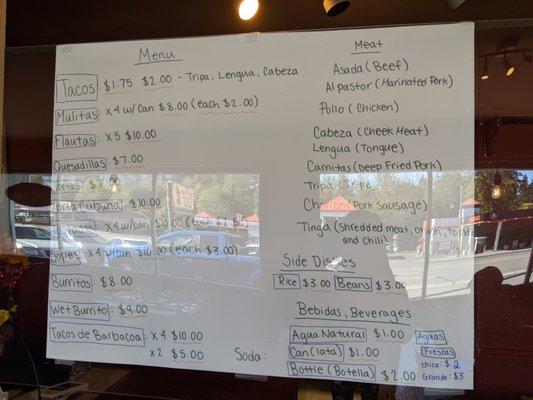 Menu
Tacos: $1.75 $2.00 - Tripa, Lengua, Cabeza
Mulitas: x4 w/can $8.00 (each $2.00)
Flautas: x5 $10.00
Quesadillas: $7.00
Tortas: $7
Torta (Cubana) $10.00
x4 w/can $10.00 (each
Sopes x4 w/can $10.00 (each $3.00)
Burritos: $8.00
Wet Burrito: $9.00
Tacos de Barbacoa: x4 $10.00
x2 $5.00
Soda:
Meat
Asada (Beef)
Al pastor (Marinated Pork)
Pollo (Chicken)
Cabeza (Cheek Meat)
Lengua (Tongue)
Carnitas (Deep Fried Pork)
Tripa
(Pork Sausage)
Tinga (shredded meat, onion,
and chili)
Side Dishes
Rice $3.00 Beans $3.00
Bebidas, Beverages
Agua Natural $1.00
Can (lata) $1.00
Bottle (Botella) $2.00
Aguas
Frescas
chica: $2
Grande: $3